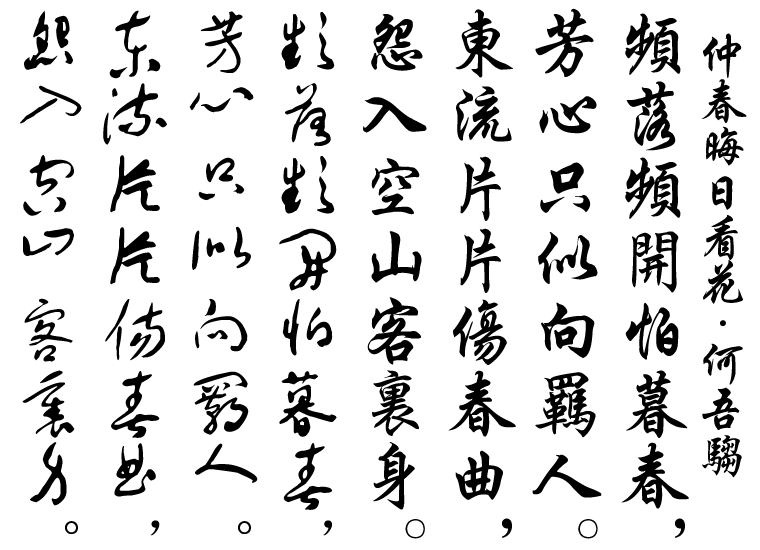 仲春晦日看花·何吾騶
頻落頻開怕暮春，
芳心只似向羈人。
東流片片傷春曲，
怨入空山客裏身。
頻落頻開怕暮春，
芳心只似向羈人。
東流片片傷春曲，
怨入空山客裏身。